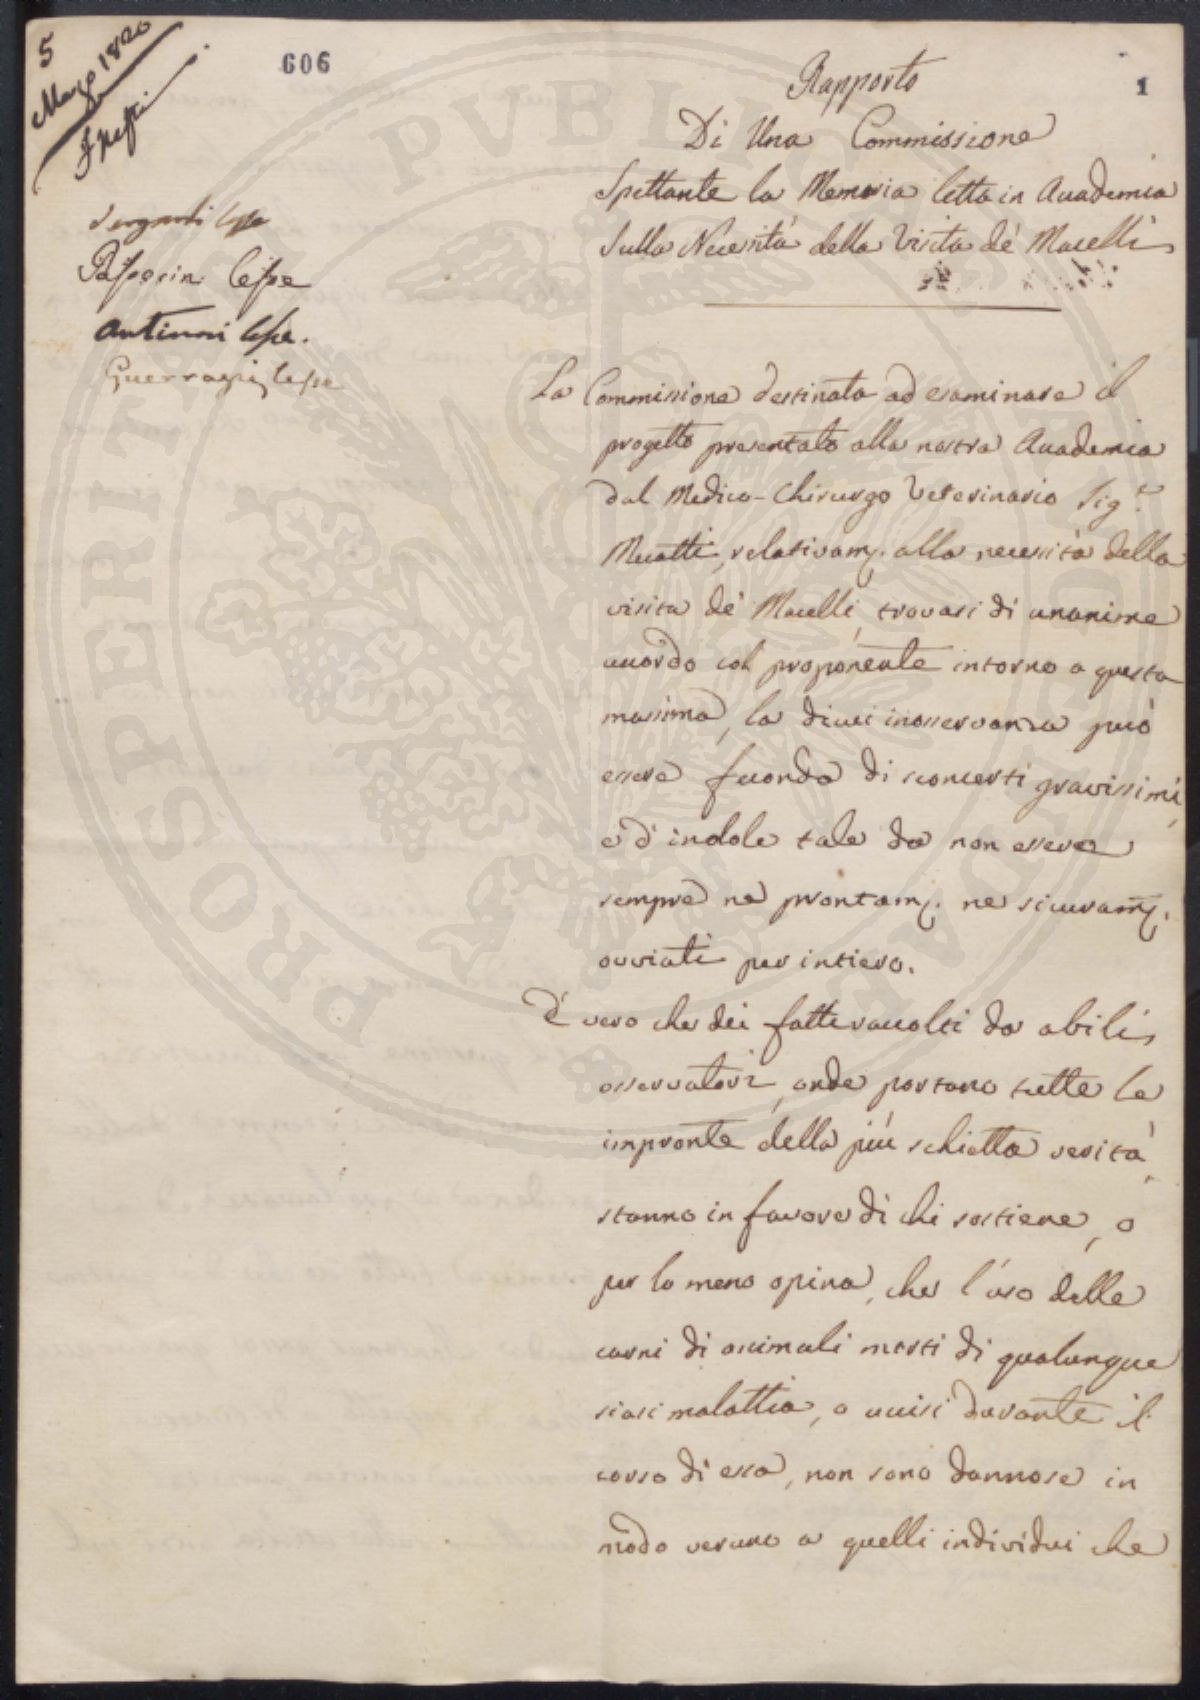 5
Marzo 1820
606
1
Rapporto
Di Una Commissione
Spettante la Memoria letta in Accademia
Sulla Necessità della Visita de' Macelli
Passerin lesse
Antinori lesse.
Guerragni lesse
La Commissione destinata ad esaminare il
progetto presentato alla nostra Accademia
dal Medico-Chirurgo Veterinario Sig.r
Mucatti, relativam. alla necessità della
visita de' Macelli, trovasi di unanime
accordo col proponente intorno a questa
massima, la di cui inosservanza può
essere feconda di sconcerti gravissimi,
e d'indole tale da non essere
sempre ne prontam. ne sicuram.
ovviati per intiero.
E' vero che dei fatti raccolti da abili
osservatori, onde portano tutte le
impronte della più schietta verità,
stanno in favore di chi sostiene, o
per lo meno opina, che l'uso delle
carni di animali morti di qualunque
siasi malattia, o uccisi durante il
corso di essa, non sono dannose in
modo veruno a quelli individui che
PROSPERITAS PVBLICA